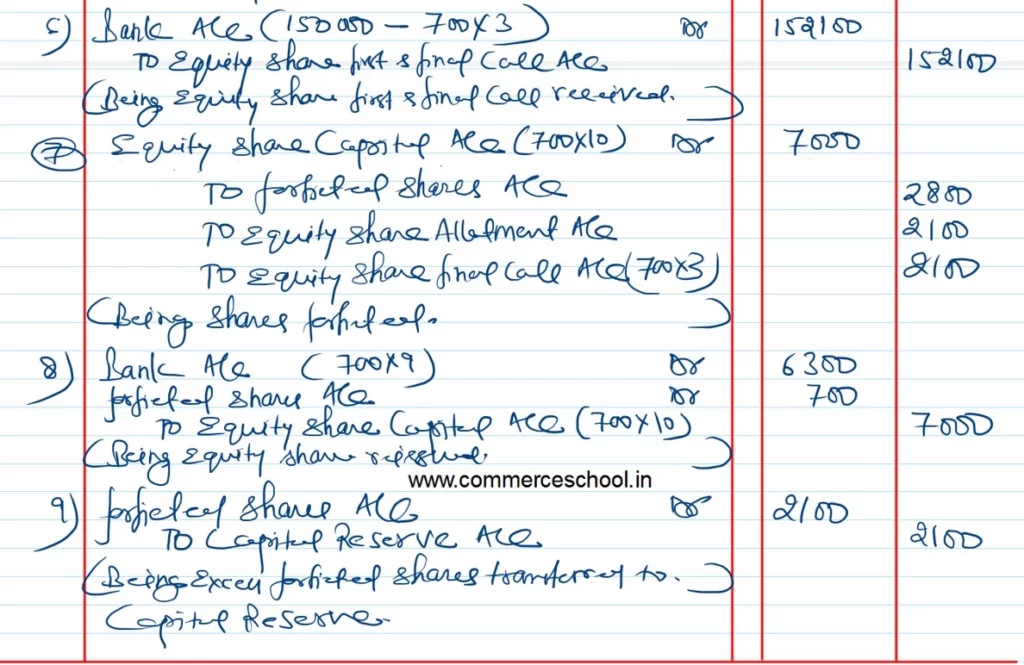 5) Bank A/c (150000 - 700X3) Dr 152100
To Equity Share first & final Call A/c 152100
(Being Equity Share first & final Call received.)
7 Equity Share Capital A/c (700X10) Dr 7000
To forfieted Shares A/c 2800
To Equity Share Allotment A/c 2100
To Equity Share final Call A/c (700X3) 2100
(Being Shares forfieted.)
8) Bank A/c (700X9) Dr 6300
forfieted Shares A/c Dr 700
To Equity Share Capital A/c (700X10) 7000
(Being Equity Share reissued.)
www.commerceschool.in
9) forfieted Shares A/c Dr 2100
To Capital Reserve A/c 2100
(Being Excess forfieted Shares transferred to.)
Capital Reserve.